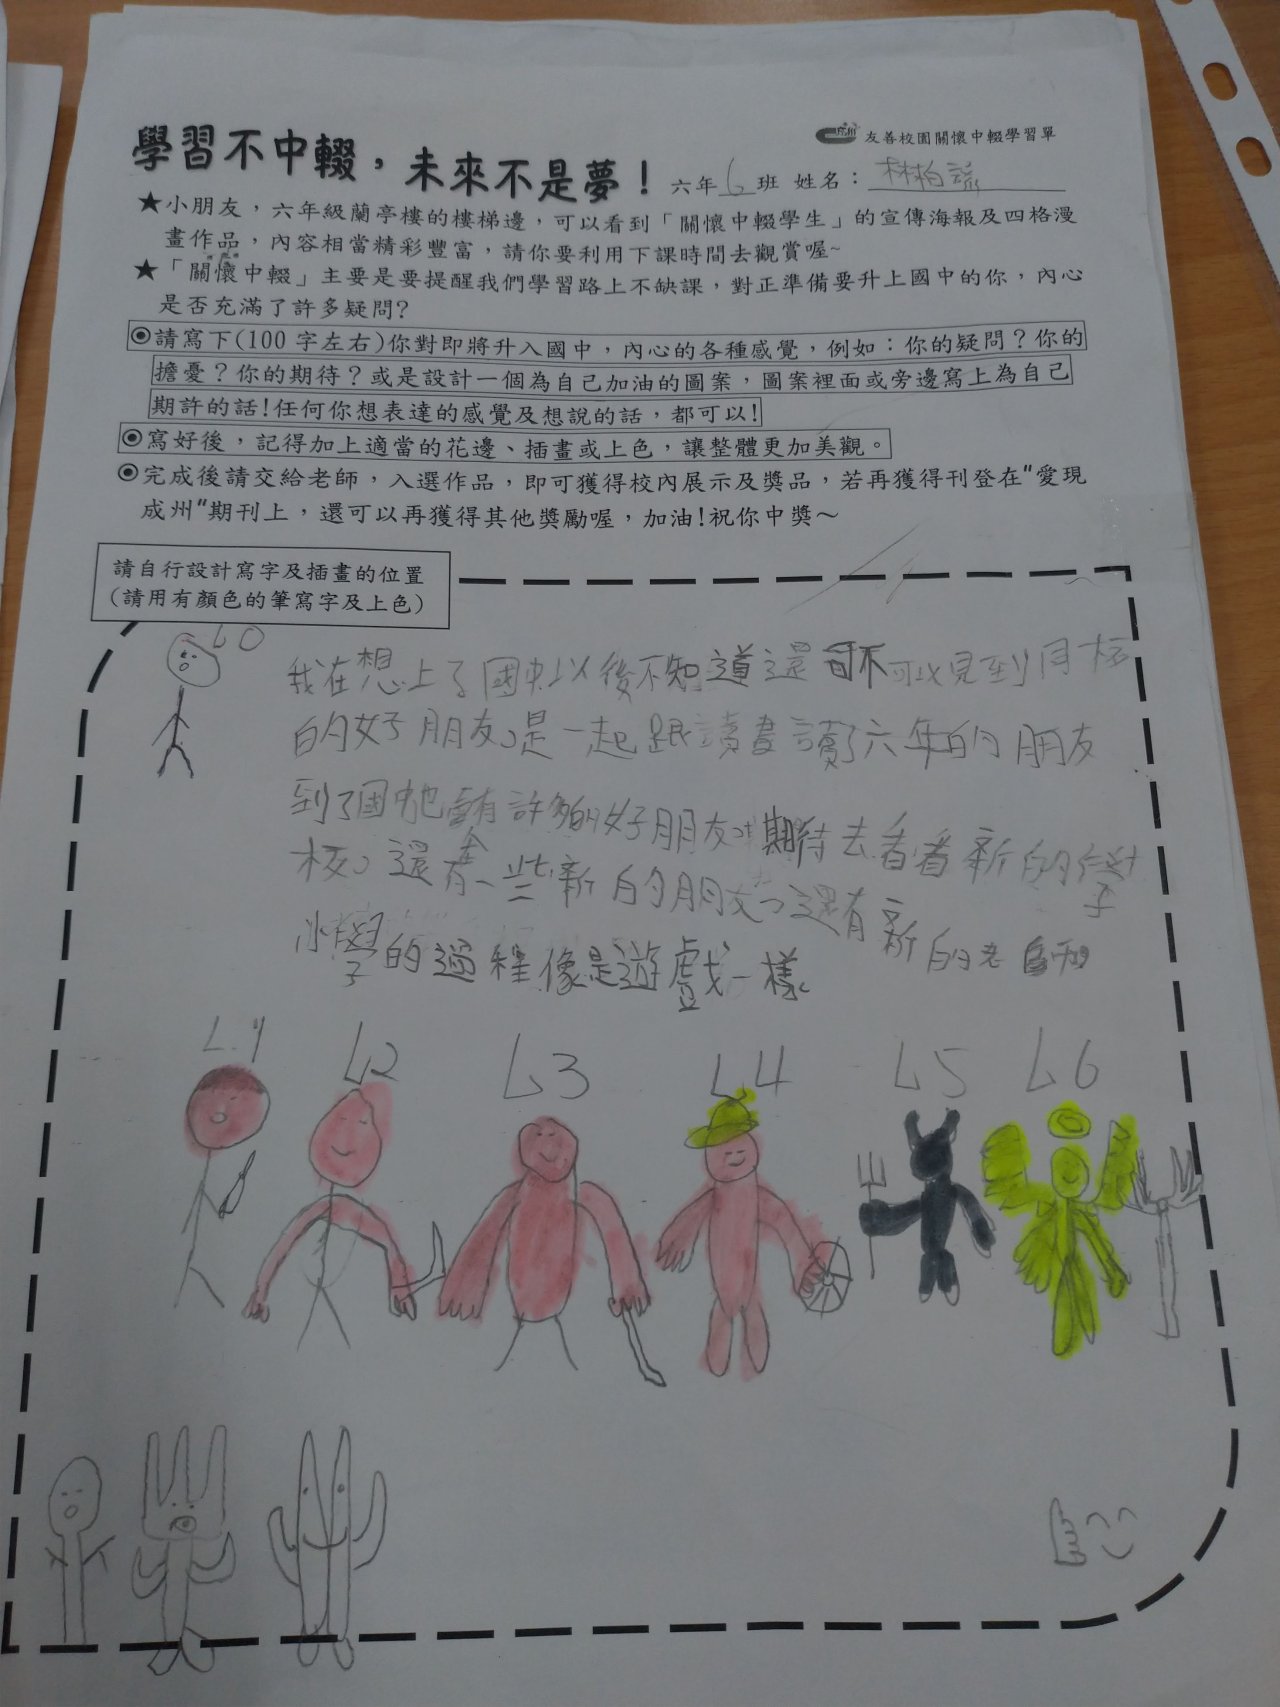 學習不中輟，未來不是夢！
友善校園關懷中輟學習單
六年6班 姓名：林柏
★小朋友，六年級蘭亭樓的樓梯邊，可以看到「關懷中輟學生」的宣傳海報及四格漫
畫作品，內容相當精彩豐富，請你要利用下課時間去觀賞喔~
★「關懷中輟」主要是要提醒我們學習路上不缺課，對正準備要升上國中的你，內心
是否充滿了許多疑問?
◉請寫下(100字左右)你對即將升入國中，內心的各種感覺，例如：你的疑問？你的
擔憂？你的期待？或是設計一個為自己加油的圖案，圖案裡面或旁邊寫上為自己
期許的話!任何你想表達的感覺及想說的話，都可以!
◉寫好後，記得加上適當的花邊、插畫或上色，讓整體更加美觀。
◉完成後請交給老師，入選作品，即可獲得校內展示及獎品，若再獲得刊登在"愛現
成州"期刊上，還可以再獲得其他獎勵喔，加油!祝你中獎～
請自行設計寫字及插畫的位置
(請用有顏色的筆寫字及上色)
L0
我在想上了國中以後不知道還可不可以見到同校
的好朋友。是一起跟讀書讀了六年的朋友
到了國中也會有許多的好朋友。期待去看看新的學
校。還會有一些新的朋友。還有新的老師
小學的過程像是遊戲一樣
L1 L2 L3 L4 L5 L6